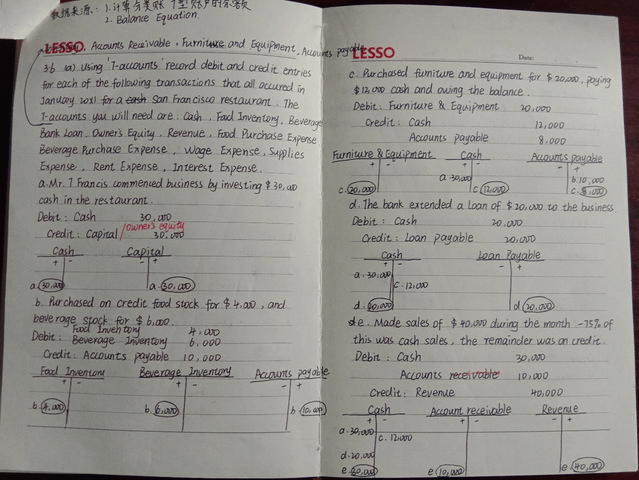 数据来源：1.计算分类账 T型账户的余额
2. Balance Equation.
LESSO. Accounts Receivable, Furniture and Equipment, Accounts payable
3.6 (a) Using 'T-accounts' record debit and credit entries
for each of the following transactions that all occured in
January 20x1 for a cash San Francisco restaurant. The
T-accounts you will need are: Cash, Food Inventory, Beverage
Bank Loan, Owner's Equity, Revenue, Food Purchase Expense
Beverage Purchase Expense, Wage Expense, Supplies
Expense, Rent Expense, Interest Expense.
a. Mr. T Francis commened business by investing $ 30,000
cash in the restaurant.
Debit: Cash 30,000
Credit: Capital/owner's equity 30,000
Cash Capital
+ - - +
a. 30,000 a. 30,000
b. Purchased on credit food stock for $ 4,000, and
beverage stock for $ 6,000.
Debit: Food Inventory 4,000
Beverage Inventory 6,000
Credit: Accounts payable 10,000
Food Inventory Beverage Inventory Accounts payable
+ - + - - +
b. 4,000 b. 6,000 b. 10,000
LESSO
Date:
c. Purchased furniure and equipment for $ 20,000, paying
$ 12,000 cash and owing the balance.
Debit: Furniture & Equipment 20,000
Credit: Cash 12,000
Accounts payable 8,000
Furniture & Equipment Cash Accounts payable
+ - + - - +
a. 30,000 b. 10,000
c. 20,000 c. 12,000 c. 8,000
d. The bank extended a loan of $ 20,000 to the business
Debit: Cash 20,000
Credit: Loan payable 20,000
Cash Loan Payable
+ - - +
a. 30,000
c. 12,000
d. 20,000 d. 20,000
e. Made sales of $ 40,000 during the month - 75% of
this was cash sales, the remainder was on credit.
Debit: Cash 30,000
Accounts receivable 10,000
Credit: Revenue 40,000
Cash Account receivable Revenue
+ - + - - +
a. 30,000
c. 12,000
d. 20,000
e. 10,000 e. 40,000